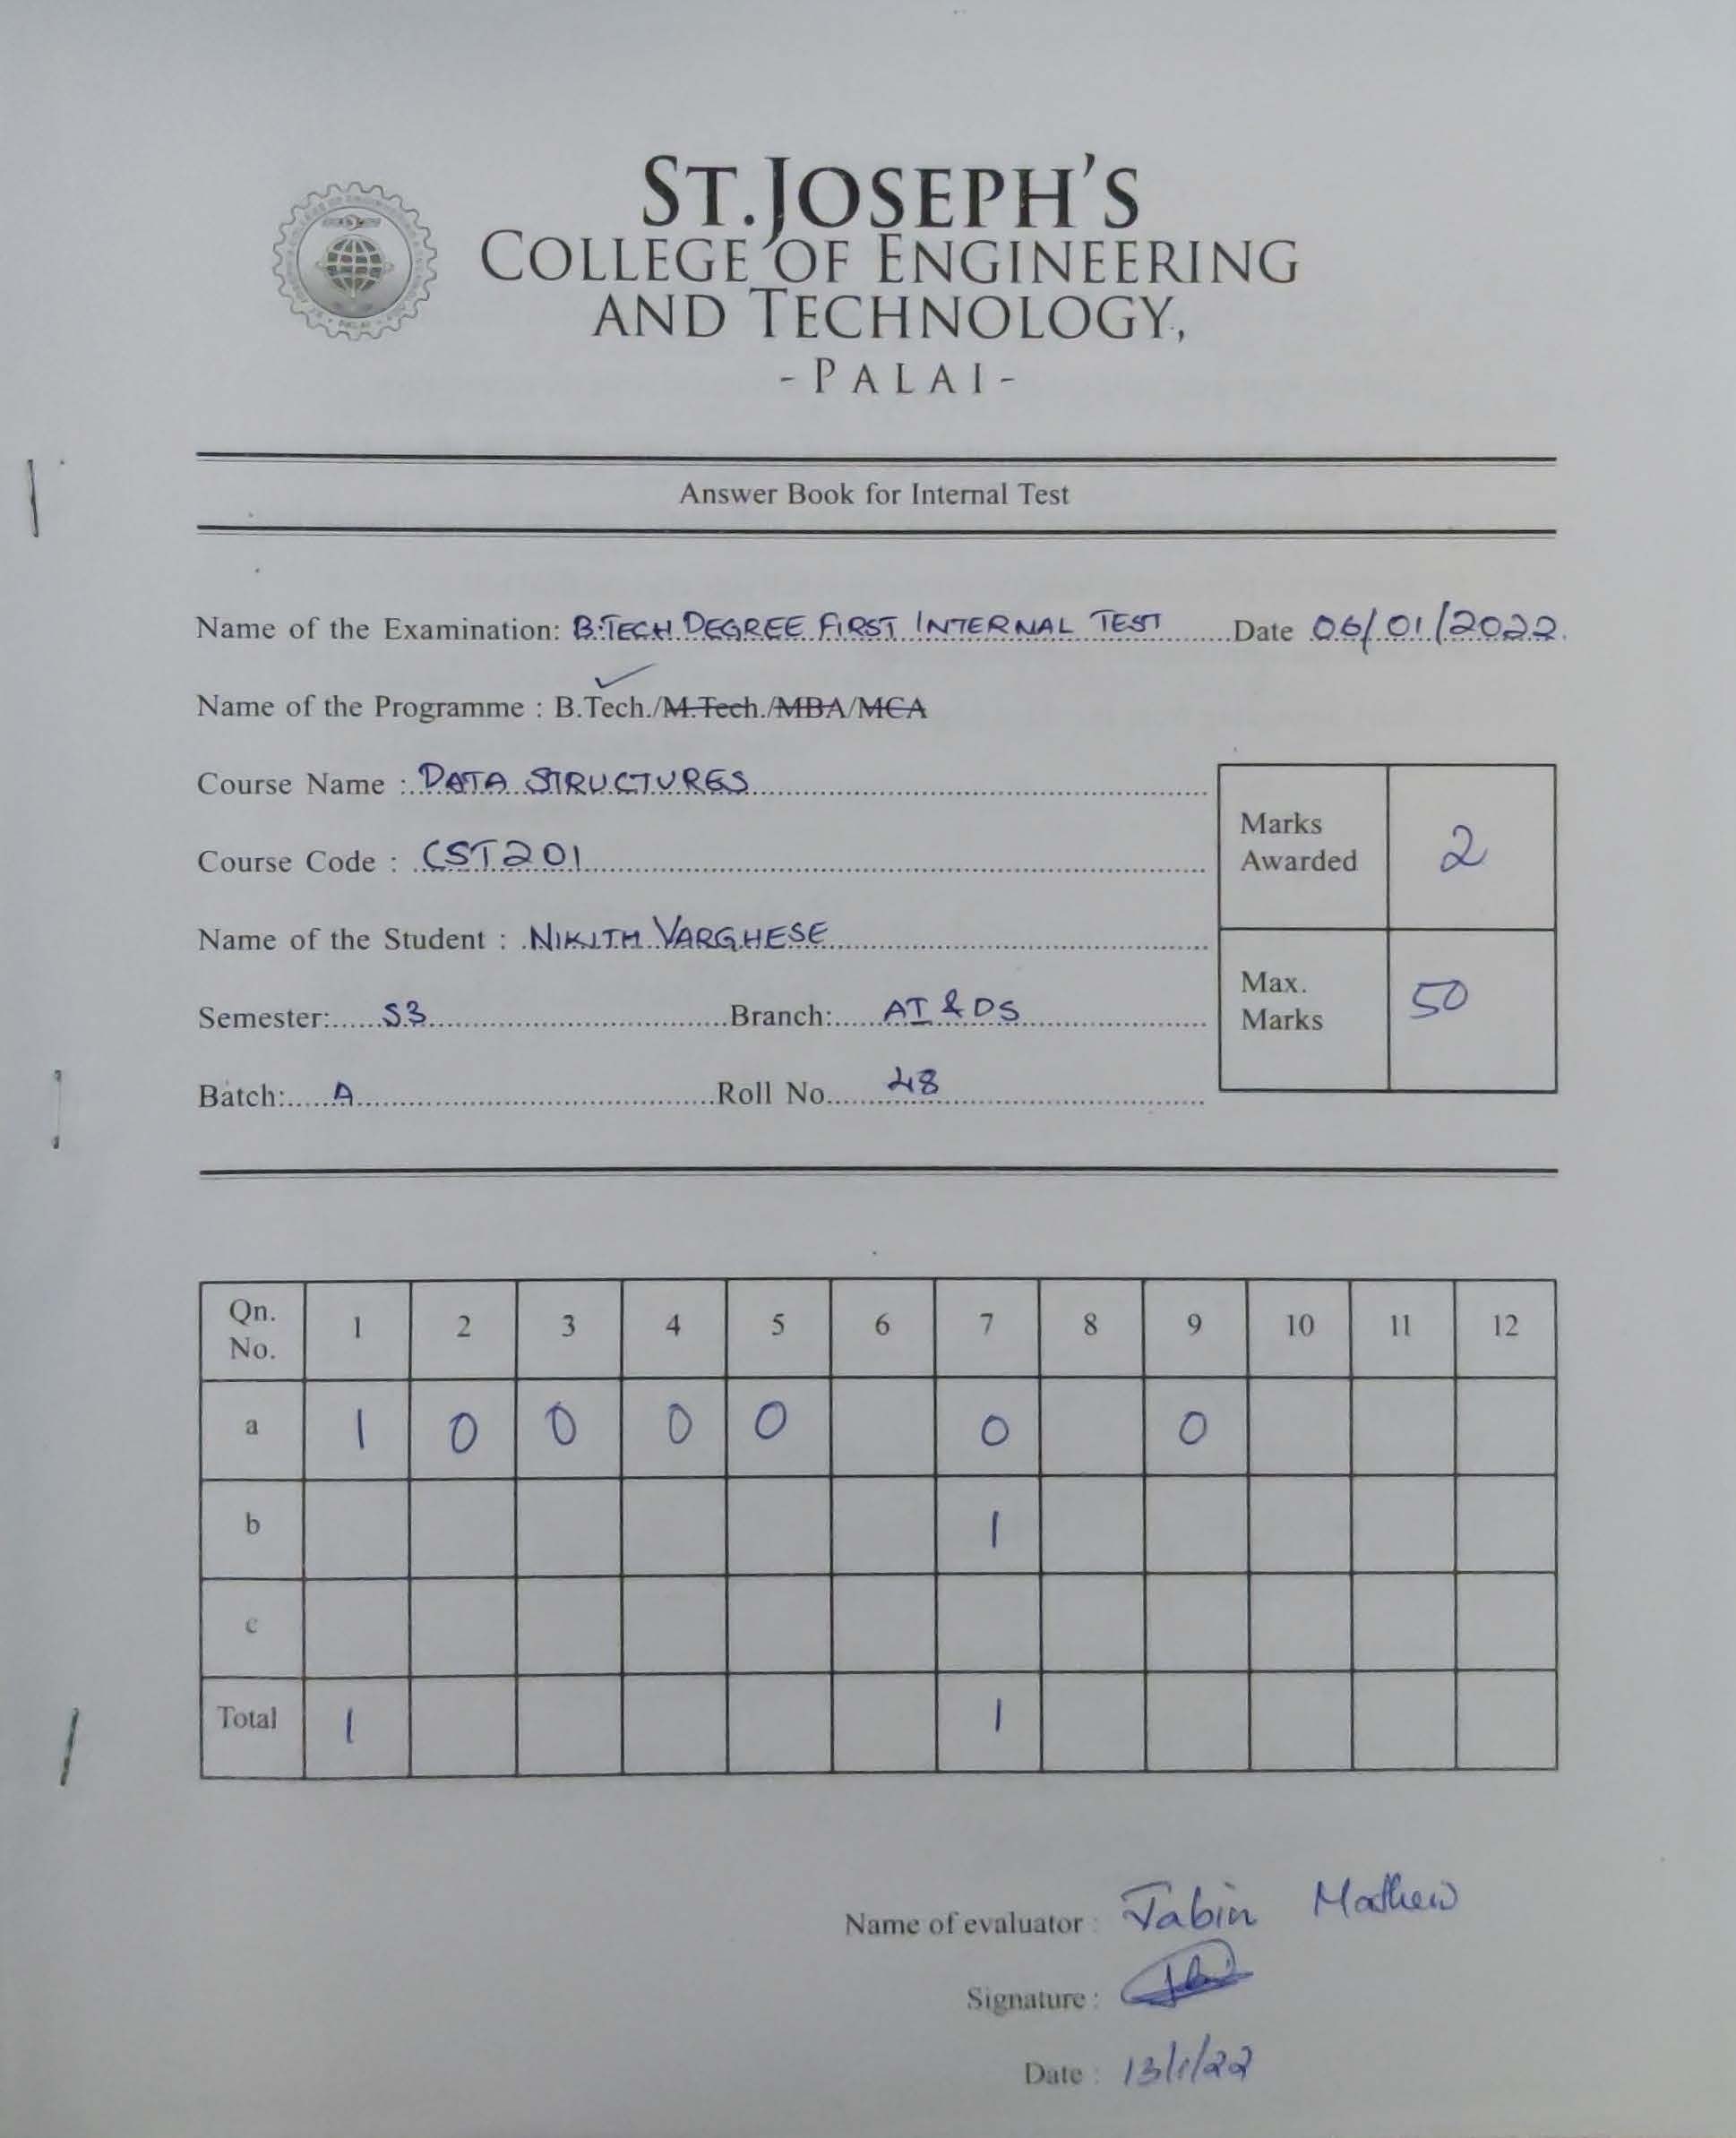 ST.JOSEPH'S
COLLEGE OF ENGINEERING
AND TECHNOLOGY,
- PALAI -
Answer Book for Internal Test
Name of the Examination: B.TECH DEGREE FIRST INTERNAL TEST Date 06/01/2022.
Name of the Programme : B.Tech./M.Tech./MBA/MCA
Course Name : DATA STRUCTURES
Course Code : CST201
Name of the Student : NIKITH VARGHESE
Semester: S3 Branch: AI & DS
Batch: A Roll No. 48
Marks Awarded 2
Max. Marks 50
Qn. No. 1 2 3 4 5 6 7 8 9 10 11 12
a 1 0 0 0 0 0 0
b 1
c
Total 1 1
Name of evaluator : Jabin Mathew
Signature :
Date : 13/1/22